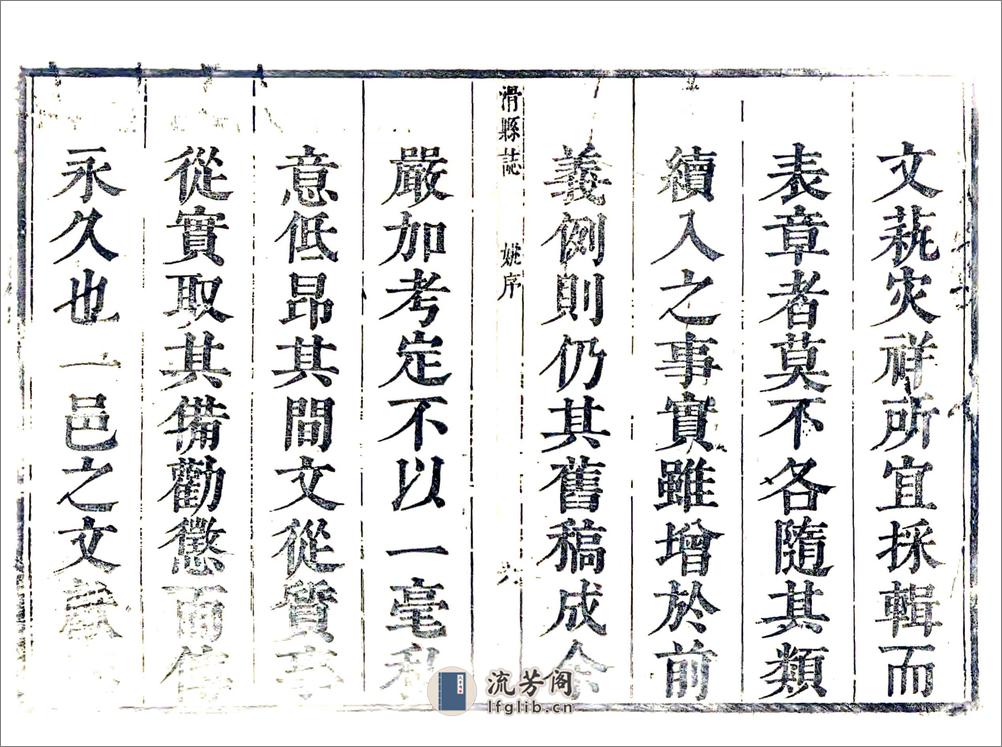 文蓺灾祥所宜採輯而
表章者莫不各隨其類
續入之事實雖增於前
義例則仍其舊稿成余
滑縣誌 姚序 六
嚴加考定不以一毫私
意低昂其間文從質事
從實取其備勸懲而信
永久也一邑之文獻
流芳阁
lfglib.cn